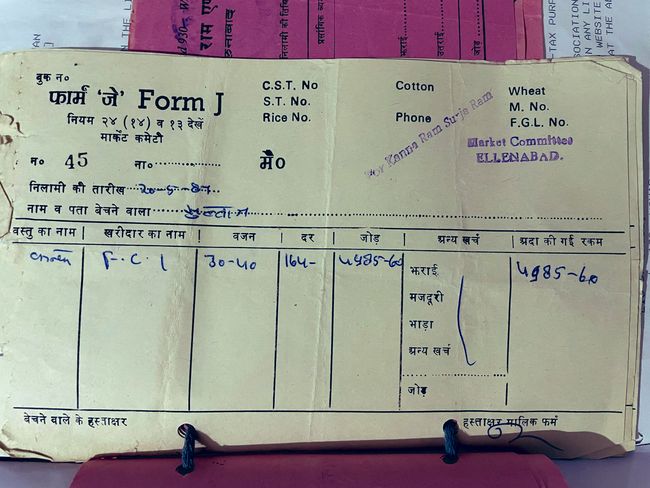 बुक न०
फार्म 'जे' Form J
नियम २४ (१४) व १३ देखें
मार्केट कमेटी
C.S.T. No
S.T. No.
Rice No.
Cotton
Phone
Wheat
M. No.
F.G.L. No.
For Kanna Ram Surja Ram
Market Committee
ELLENABAD.
न० 45 ना०
मै०
निलामी की तारीख 20-5-87
नाम व पता बेचने वाला
वस्तु का नाम | खरीदार का नाम | वजन | दर | जोड़ | अन्य खर्च | अदा की गई रकम
F.C.I 30-40 164- 4985-60 4985-60
भराई
मजदूरी
भाड़ा
अन्य खर्च
जोड़
बेचने वाले के हस्ताक्षर
हस्ताक्षर मालिक फर्म